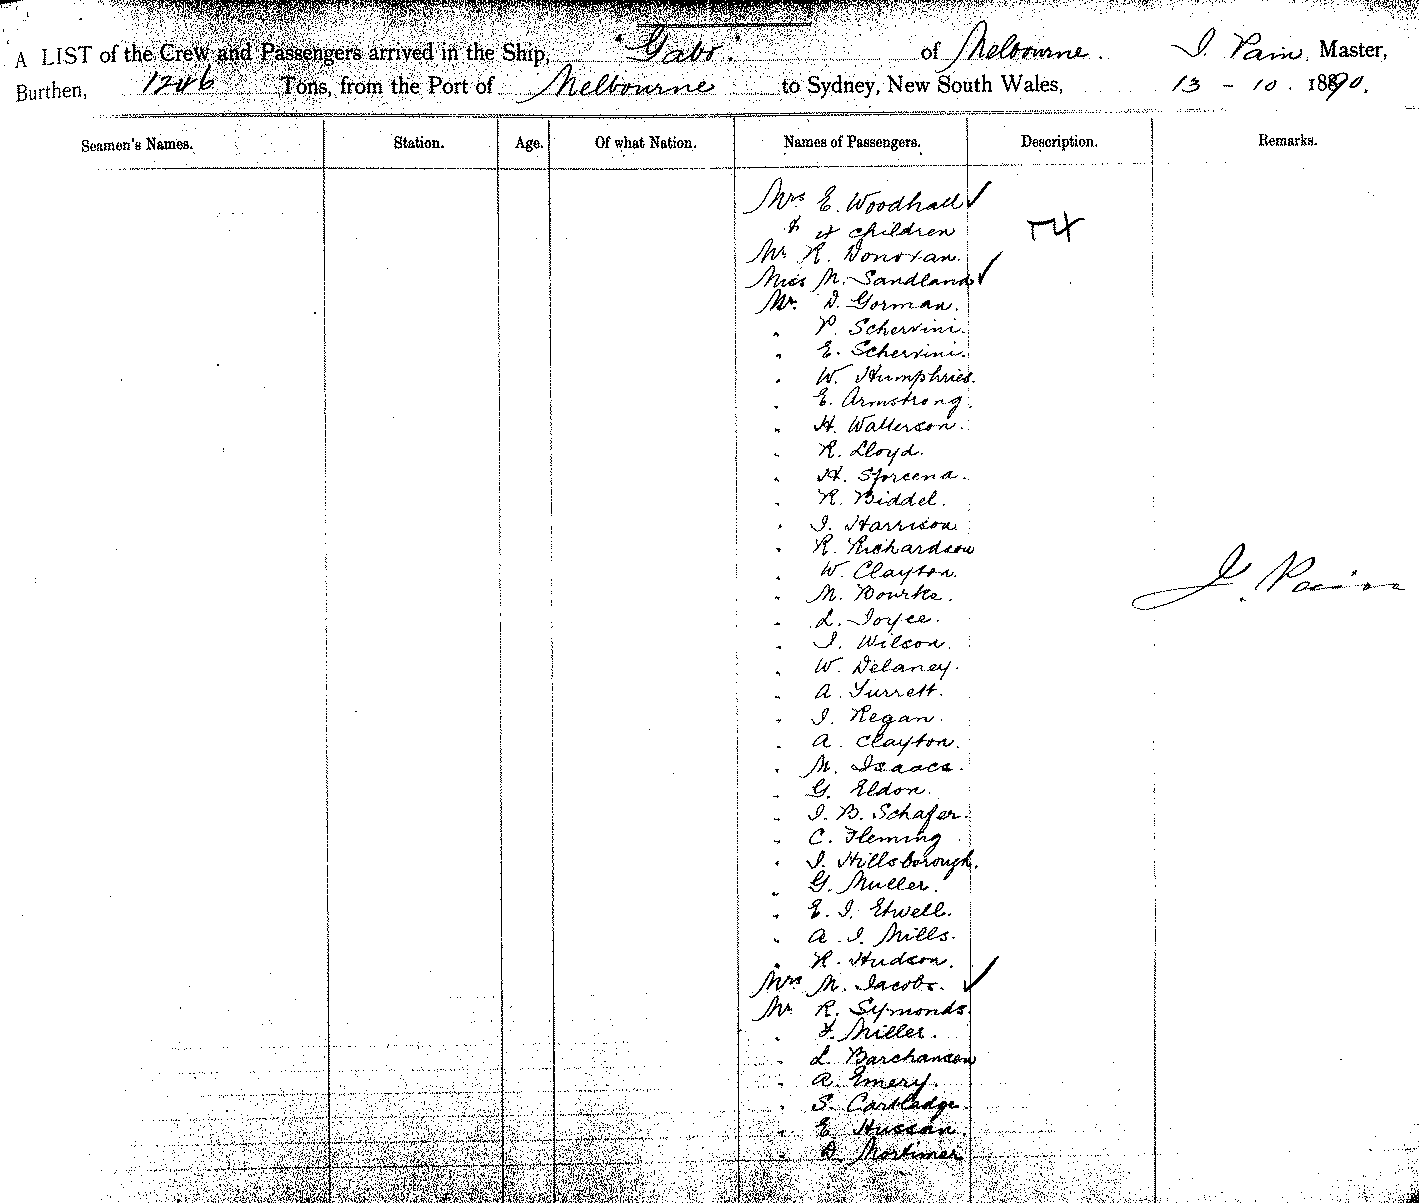 A LIST of the Crew and Passengers arrived in the Ship, "Gabo" of Melbourne. J. Pain, Master,
Burthen, 1246 Tons, from the Port of Melbourne to Sydney, New South Wales, 13 - 10. 1890.
Seamen's Names. Station. Age. Of what Nation. Names of Passengers. Description. Remarks.
Mrs E. Woodhall ✓
& 4 children
Mr R. Donovan.
Miss M. Sandland ✓
Mr. D. Gorman.
" P. Schervini.
" E. Schervini.
" W. Humphries.
" E. Armstrong.
" H. Watterson.
" R. Lloyd.
" H. Sforcena.
" R. Biddel.
" J. Harrison
" R. Richardson
" W. Clayton.
" M. Bourke.
J. Pain
" L. Joyce.
" J. Wilson.
" W. Delaney.
" A. Turrett.
" J. Regan.
" A. Clayton.
" M. Isaacs.
" G. Eldon.
" J. B. Schafer.
" C. Fleming
" J. Hillsborough.
" G. Muller.
" E. J. Etwell.
" A. J. Mills.
" R. Hudson.
Mrs M. Jacobs. ✓
Mr R. Symonds.
" F. Miller.
" L. Barchanson
" A. Emery.
" S. Cartledge.
" E. Hussan.
" D. Mortimer